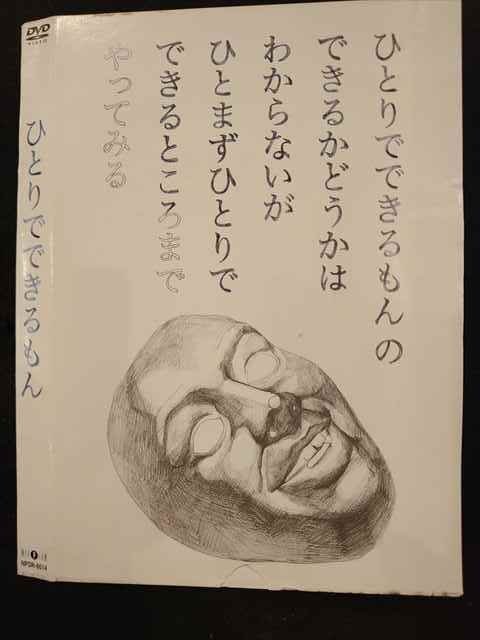 ひとりでできるもんの
できるかどうかは
わからないが
ひとまずひとりで
できるところまで
やってみる
DVD
VIDEO
ひとりでできるもん